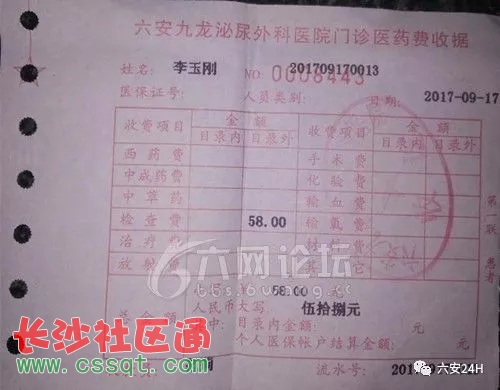 六安九龙泌尿外科医院门诊医药费收据
姓名: 李玉刚 NO: 0008443 201709170013
医保证号: 人员类别: 日期: 2017-09-17
收费项目 金额 收费项目 金额
目录内 目录外 目录内 目录外
西药费 手术费
中成药费 化验费
中草药 输血费
检查费 58.00 输氧费
治疗费
放射
58.00 元
人民币大写 伍拾捌元
总金额 中: 目录内金额: 元 元
个人医保帐户结算金额: 元
流水号:
第一联 患者
六网论坛
bbs.6wang.cc
长沙社区通
www.cssqt.com
六安24H